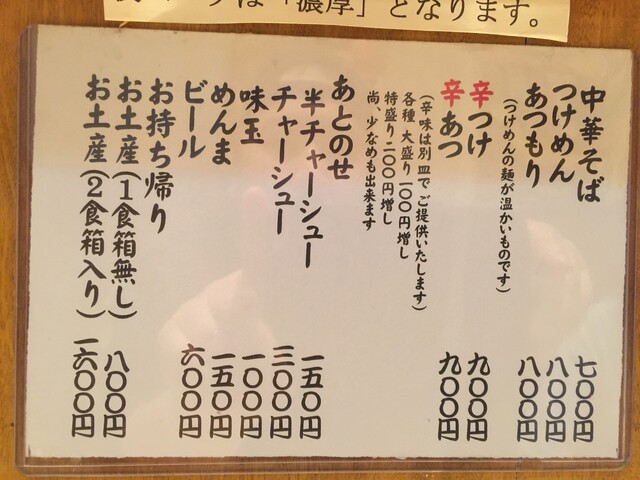 は「濃厚」となります。
中華そば 七〇〇円
つけめん 八〇〇円
あつもり 八〇〇円
(つけめんの麺が温かいものです)
辛つけ 九〇〇円
辛あつ 九〇〇円
(辛味は別皿でご提供いたします)
各種 大盛り一〇〇円増し
特盛り二〇〇円増し
尚、少なめも出来ます
あとのせ
半チャーシュー 一五〇円
チャーシュー 三〇〇円
味玉 一〇〇円
めんま 一五〇円
ビール 六〇〇円
お持ち帰り
お土産(1食箱無し) 八〇〇円
お土産(2食箱入り) 一六〇〇円